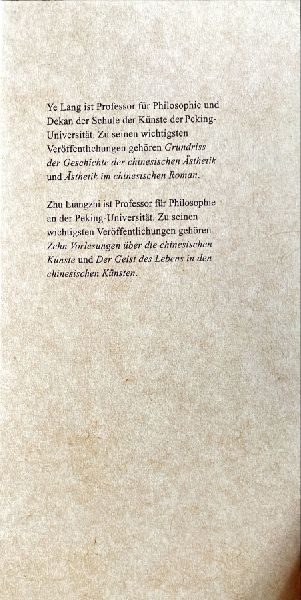 Ye Lang ist Professor für Philosophie und
Dekan der Schule der Künste der Peking-
Universität. Zu seinen wichtigsten
Veröffentlichungen gehören Grundriss
der Geschichte der chinesischen Ästhetik
und Ästhetik im chinesischen Roman.
Zhu Liangzhi ist Professor für Philosophie
an der Peking-Universität. Zu seinen
wichtigsten Veröffentlichungen gehören
Zehn Vorlesungen über die chinesischen
Künste und Der Geist des Lebens in den
chinesischen Künsten.